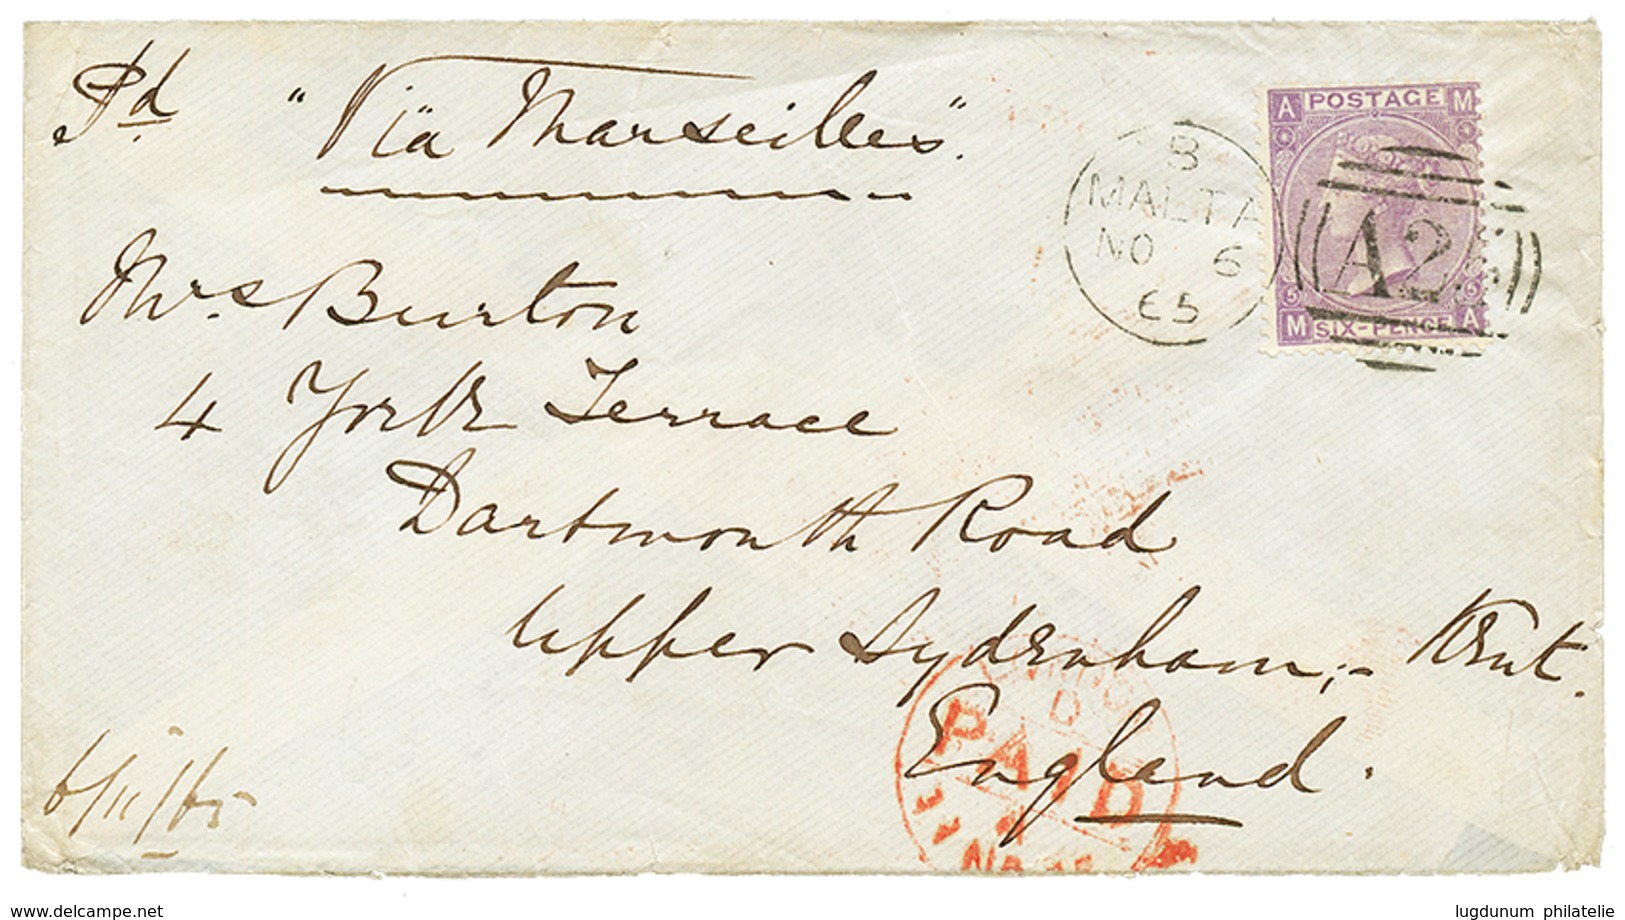 Pd "Via Marseilles".
B
MALTA
NO 6
65
A POSTAGE M
A25
5 5
M SIX-PENCE A
Mrs Burton
4 York Terrace
Dartmouth Road
Upper Sydenham,- Kent.
England.
D
PAID
6/11/65
delcampe.net
lugdunum philatelie